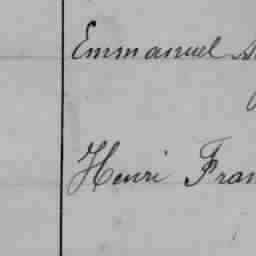 Emmanuel
Henri Fran